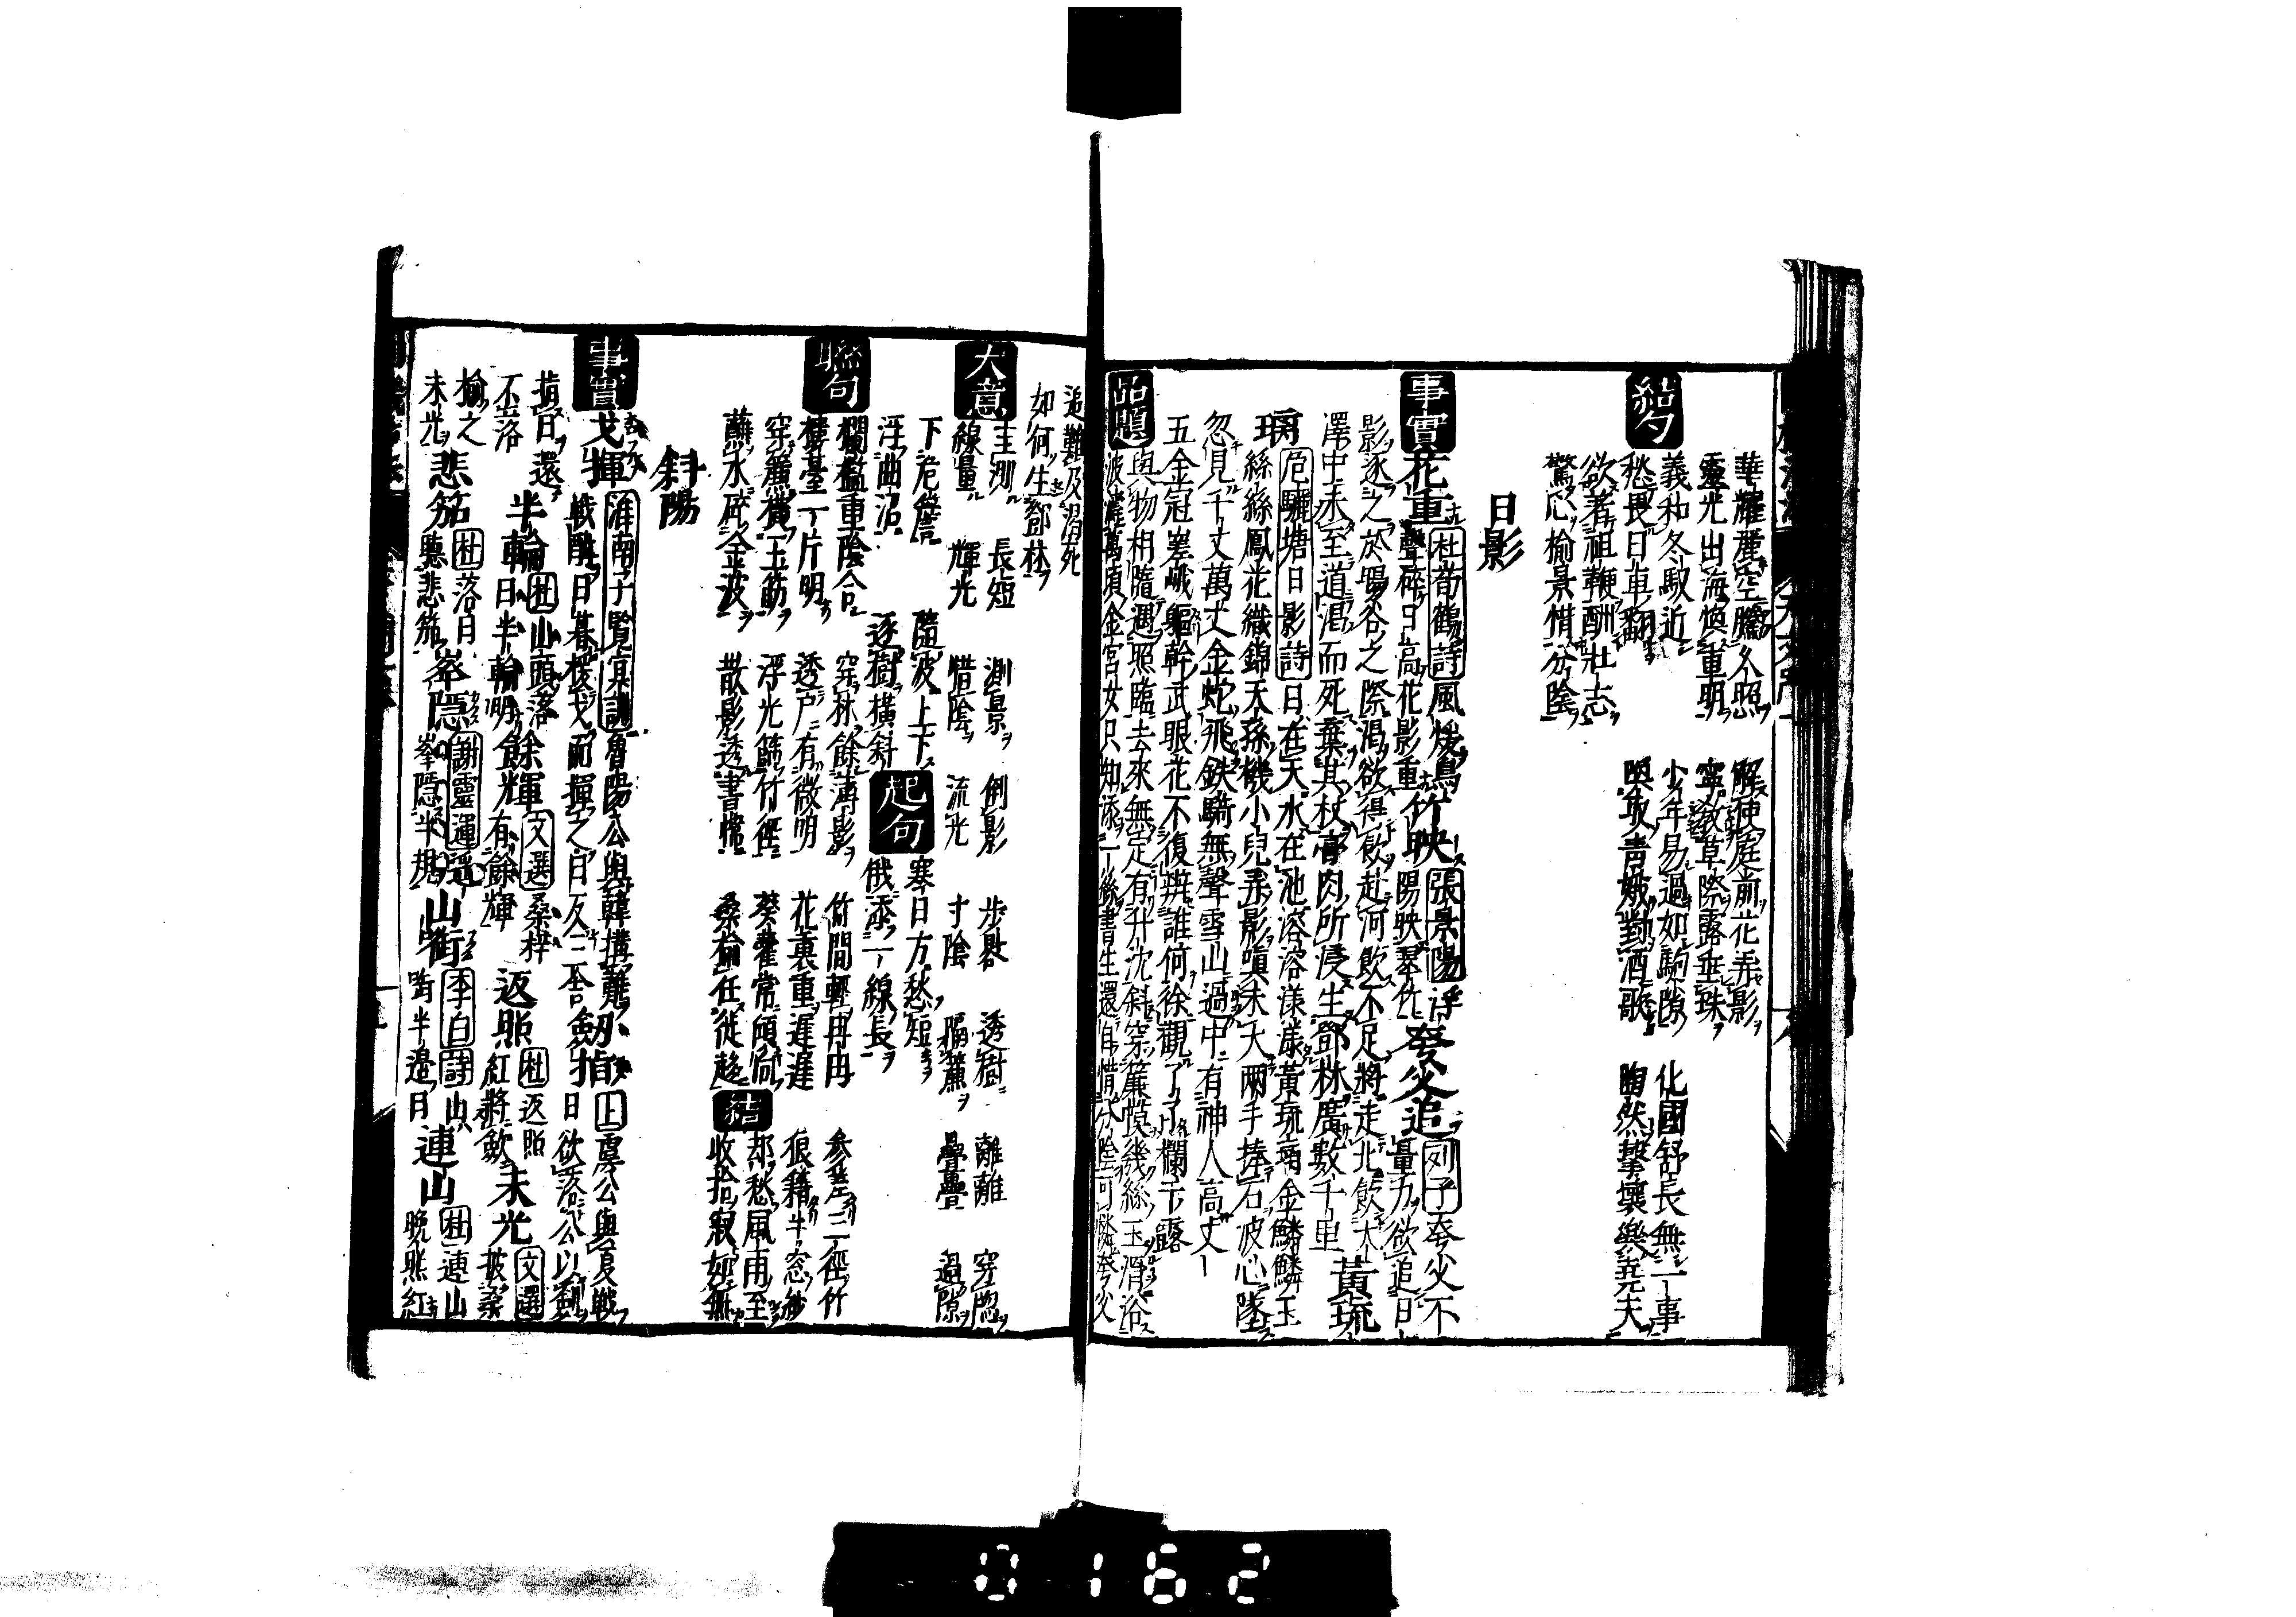 華耀麗空騰久照 解使庭前花弄影
靈光出海煥重明 寧教草際露垂珠
結句 羲和冬馭近 少年易過如駒隙 化國舒長無一事
愁畏日車翻 與取青娥對酒歌 陶然擊壤樂堯夫
欲著祖鞭酬壯志
驚心榆景惜分陰
日影
事實 花重 杜荀鶴詩 風煖鳥聲碎日高花影重 竹映 張景陽 浮陽映翠竹 夸父追 列子 夸父不量力欲追日
影逐之於暘谷之際渴欲得飲赴河飲不足將走北飲大
澤中未至道渴而死棄其杖膏肉所浸生鄧林廣數千里 黃琉
璃 危驪塘日影詩 日在天水在池溶溶漾漾黃琉璃金鱗鱗玉
絲絲鳳花織錦天孫機小兒弄影嗔未大兩手捧石波心墜
忽見千丈萬丈金蛇飛鉄騎無聲雪山過中有神人高丈
五金冠峩峨軀幹武眼花不復辨誰何徐觀了了欄干露
品題 與物相隨遇照臨去來無定有升沈斜穿簾幙幾絲玉
波濯萬頃金宮女只知添一線書生還自惜分陰可憐夸父
追難及渴死
如何生鄧林
大意 圭測 長短 測景 倒影 步晷 透樹 離離 穿牕
線量 輝光 惜陰 流光 寸陰 隔簾 疊疊 過隙
下危簷 隨波上下 起句 寒日方愁短
浮曲沼 逐樹橫斜 俄添一線長
聯句 欄檻重陰合 穿林餘薄影 竹間輕冉冉 參差三徑竹
樓臺一片明 透戶有微明 花裏重遲遲 狼籍半窓紗
穿簾橫玉筯 浮光篩竹徑 葵藿常傾向 結 却愁風雨至
蘸水碎金波 散影透書幌 桑榆任徙趍 收拾寂如無
斜陽
事實 戈揮 淮南子覽冥訓 魯陽公與韓搆難戰酣日暮援戈而揮之日反三舍 劔指 上 虞公與夏戰日欲落公以劍
指日還不落 半輪 杜 山頭落日半輪明 餘輝 文選 桑梓有餘輝 返照 杜 返照紅將歛 末光 文選 披桑
榆之末光 悲笳 杜 落月聽悲笳 峯隱 謝靈運 遠峯隱半規 山銜 李白詩 山銜半邉日 連山 杜 連山晚照紅
0162